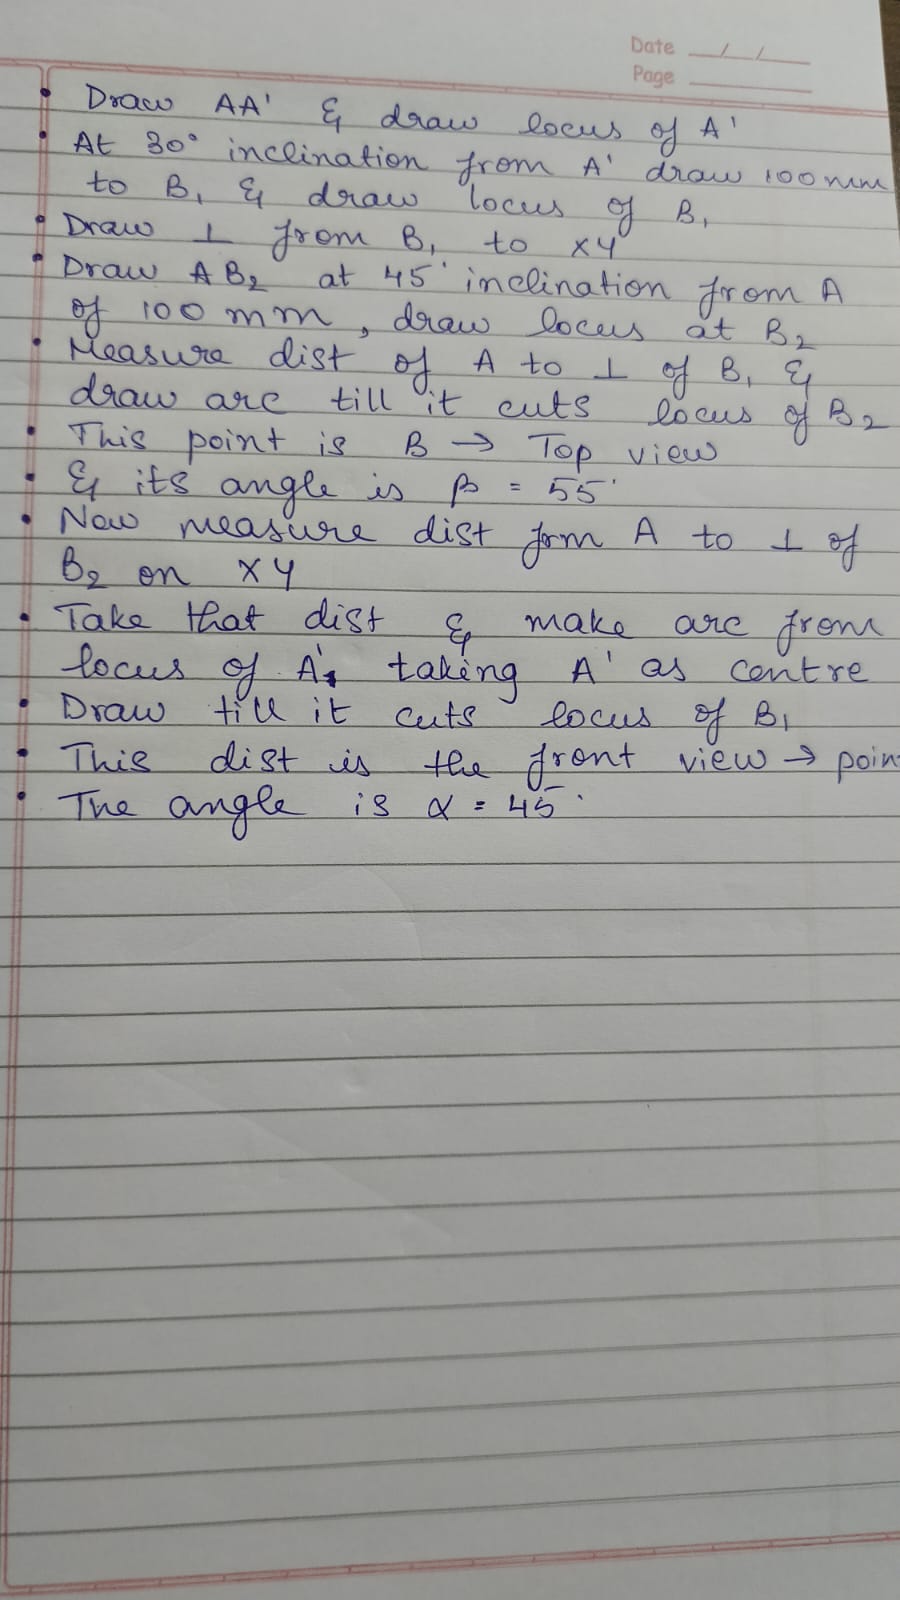 Date __/__/__
Page ______
• Draw AA' & draw locus of A'
• At 30° inclination from A' draw 100 mm
to B, & draw locus of B,
• Draw ⊥ from B, to XY
• Draw AB2 at 45° inclination from A
of 100 mm, draw locus at B2
• Measure dist of A to ⊥ of B, &
draw arc till it cuts locus of B2
• This point is B → Top view
• & its angle is β = 55°
• Now measure dist form A to ⊥ of
B2 on XY
• Take that dist & make arc from
locus of A' taking A' as centre
• Draw till it cuts locus of B1
• This dist is the front view → poin
• The angle is α = 45°